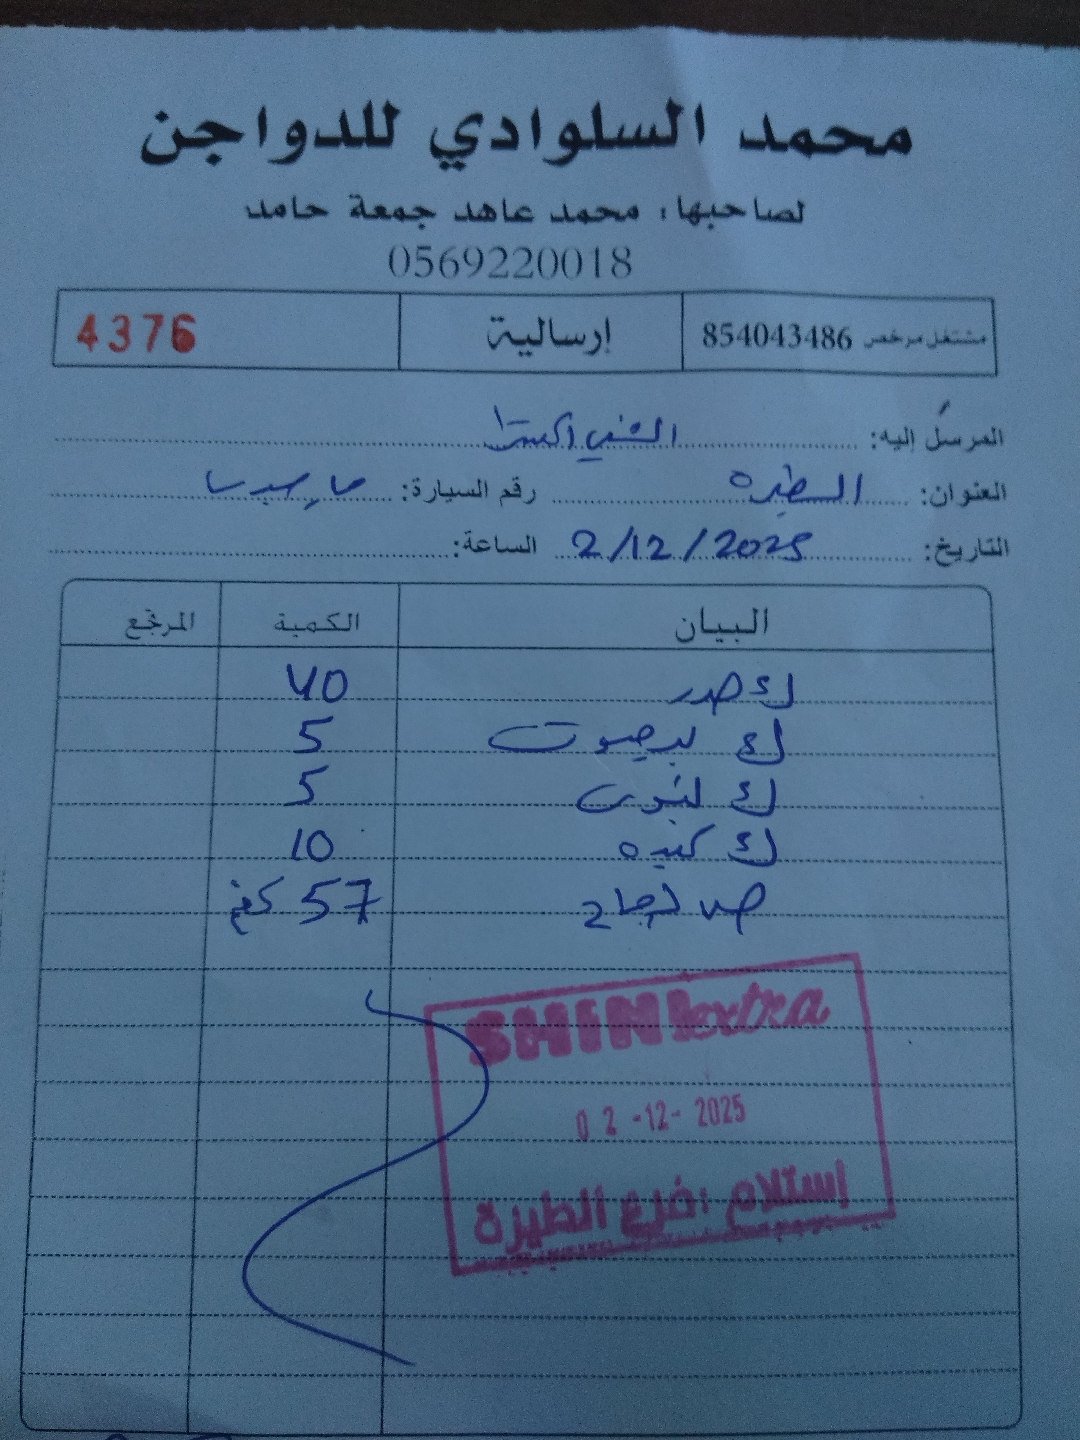 محمد السلوادي للدواجن
لصاحبها: محمد عاهد جمعة حامد
0569220018
مشتغل مرخص 854043486 إرسالية 4376
المرسَل إليه: الشني اكسترا
العنوان: الطيره رقم السيارة:
التاريخ: 2/12/2025 الساعة:
البيان الكمية المرتجع
ك صدر 40
ك 5
ك 5
ك كبده 10
دجاج 57 كغم
SHINI extra
02-12-2025
إستلام فرع الطيرة